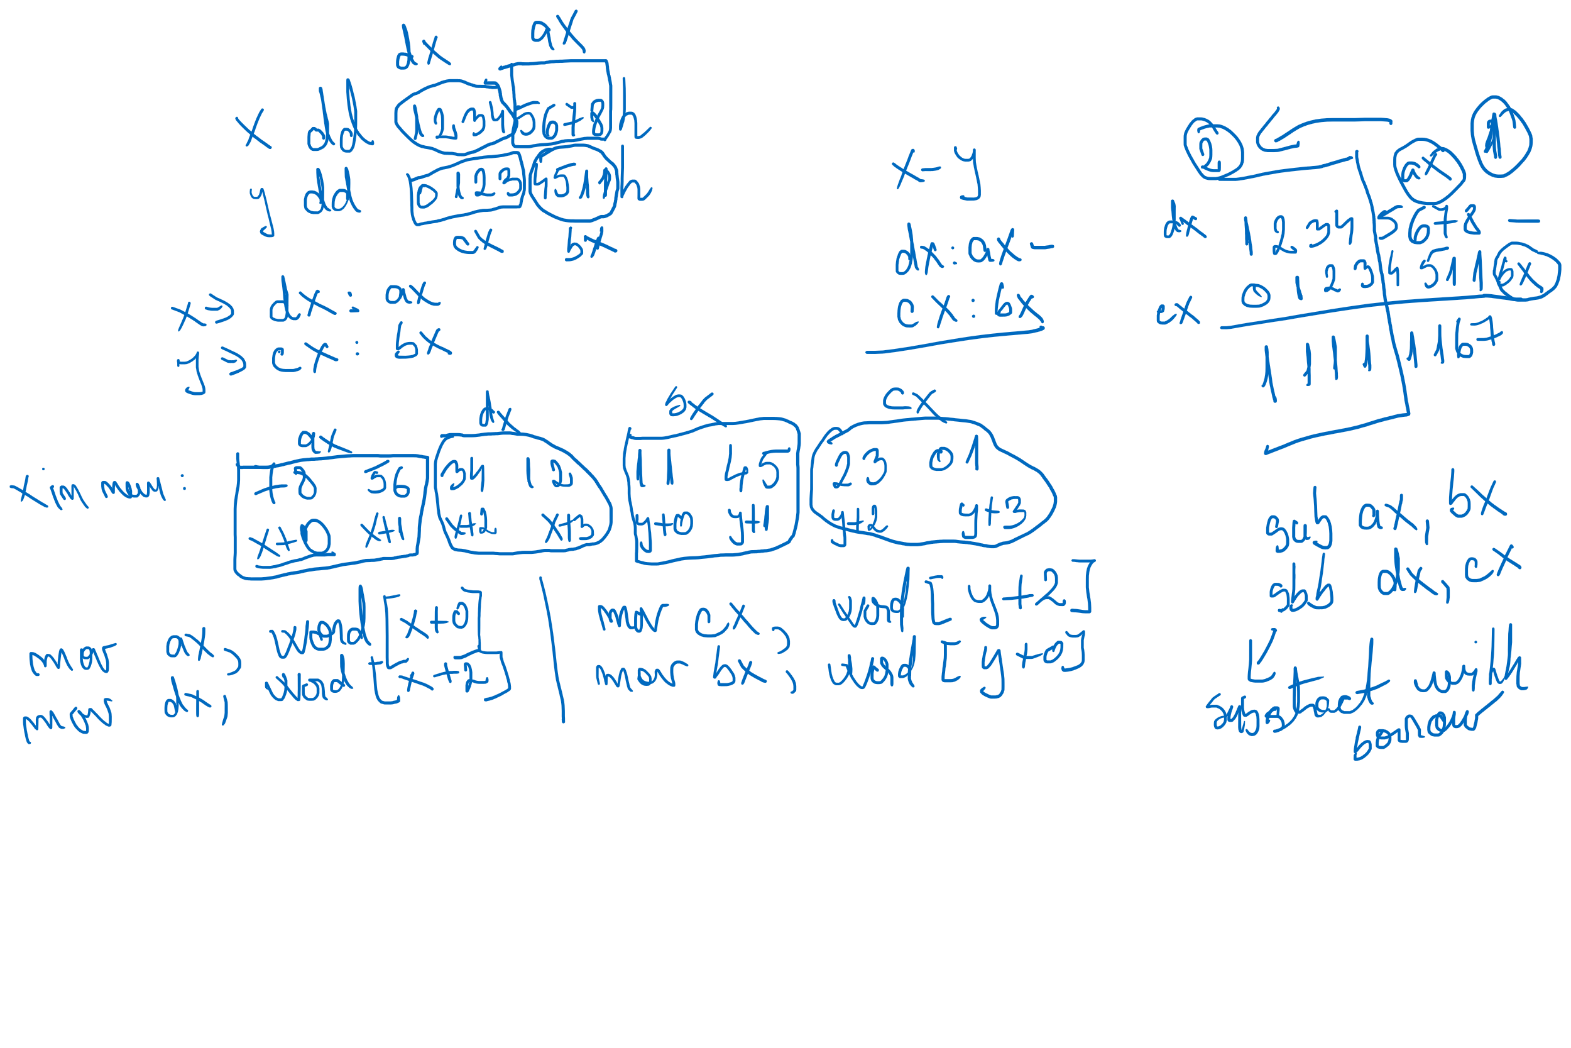 dx ax
x dd 12345678h
y dd 01234511h
cx bx
x => dx : ax
y => cx : bx
x-y
dx:ax -
cx:bx
2 ax 1
dx 1234 5678 -
cx 0123 4511 bx
1111 1167
ax dx bx cx
x in mem: 78 56 34 12 11 45 23 01
x+0 x+1 x+2 x+3 y+0 y+1 y+2 y+3
mov ax, word [x+0]
mov dx, word [x+2]
mov cx, word [y+2]
mov bx, word [y+0]
sub ax, bx
sbb dx, cx
substract with
borrow